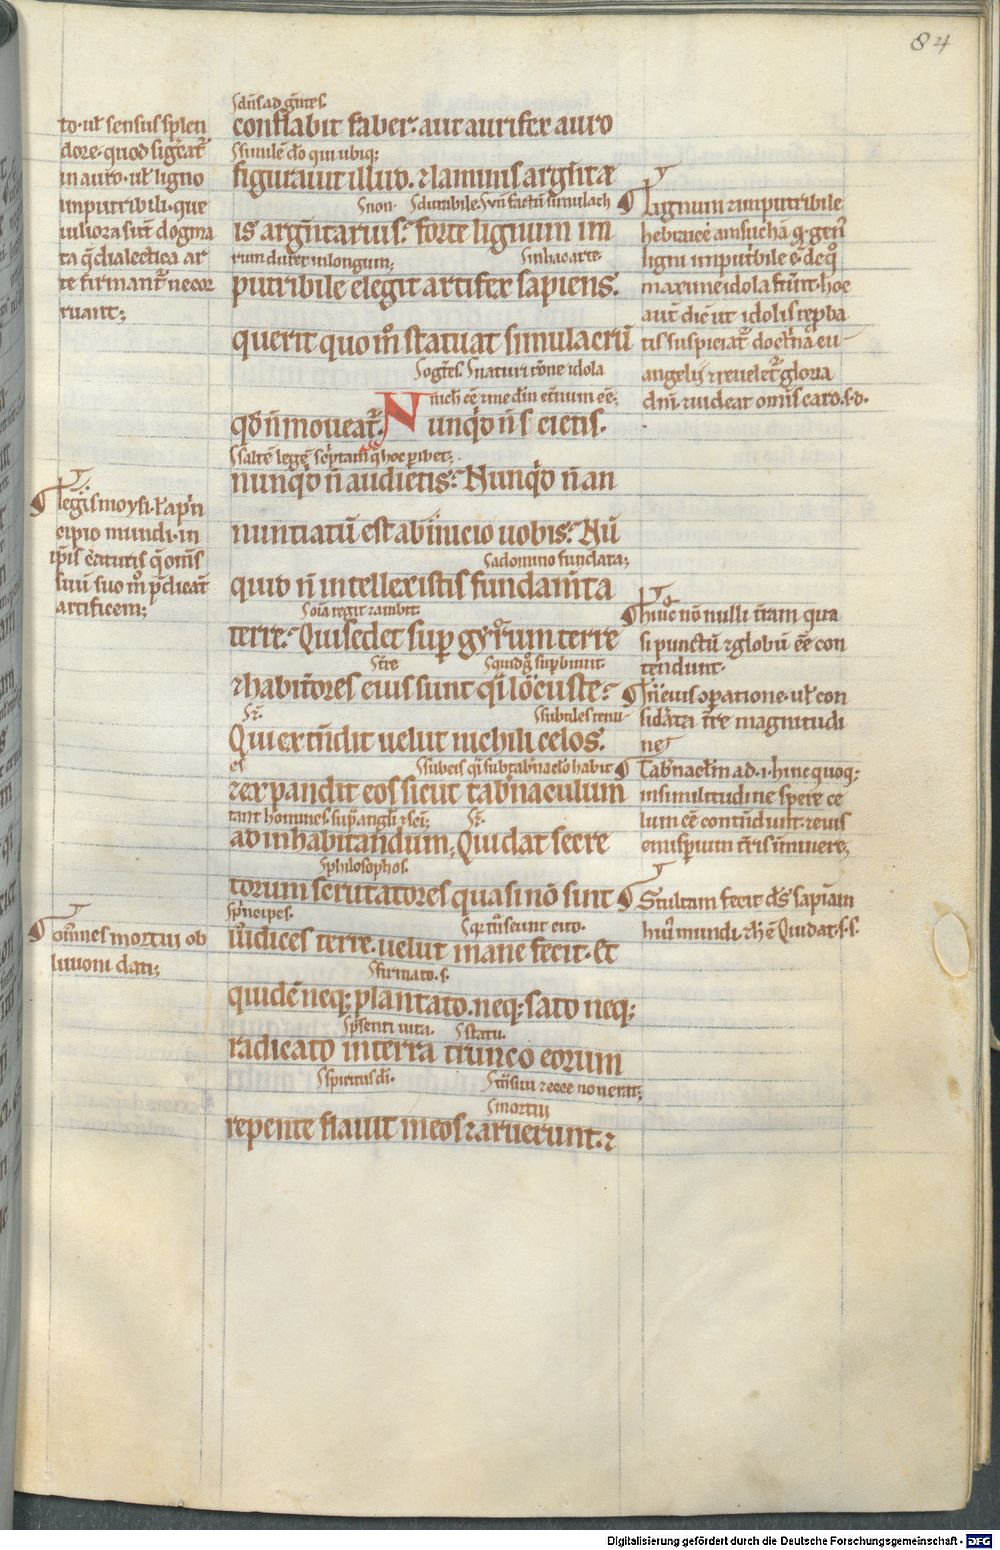 84
to. ul' sensus splen
dore. quod sig̅cat̅r
in auro. ul' ligno
inputribili. que
iuliora sut̅ dogma
ta q̅ dialectica ar
te firmant̅ ne cor
ruant;
legis moysi. l' a p̅n
cipio mundi. in
ip̅is c̅aturis q̅ om̅s
suu̅ suo m̅o p̅dicat̅
artificem;
om̅nes mortui ob
liuioni dati;
s. d̅ns ad g̅ntes.
conflabit faber. aut aurifex auro
s. simile̅ d̅o qui ubiq;
figurauit illud. ⁊ laminis arg̅nteę
s. non. s. durabile. s. un̅ factu̅ simulach
is arg̅ntarius. forte lignum im
rum duret in longum; s. in hac arte.
putribile elegit artifex sapiens.
querit quo m̅o statuat simulacru̅
s. o g̅tes. s. naturi r̅one idola
nich̅ ee̅ ⁊ me d̅m et̅num ee̅;
qd̅ n̅ moueat̅r. Nunq̇d n̅ scietis.
s. salte̅ lege̅ sc̅ptam q̅ hoc p̅ibet;
nunq̇d n̅ audietis. Nunq̇d n̅ an
nuntiatu̅ est ab inicio uobis. Nu̅
s. a domino fundata;
quid n̅ intellexistis fundam̅ta
s. o̅ia regit ⁊ ambit
terre. Qui sedet sup̅ gyrum terre
s. t̅re s. quid g̅ sup̅biunt
⁊ habit̅tores eius sunt q̅i locuste.
s. e̅. s. subtiles tenu
Qui ext̅ndit uelut nichili celos.
et s. sub eis q̅i sub tab̅naclo habit
⁊ expandit eos sicut tab̅naculum
tant homines. sup̅ angli ⁊ sc̅i; s. e̅.
ad inhabitandum; Qui dat secre
s. philosophos.
torum scrutatores quasi no̅ sint
s. p̅ncipes. s. q̅ t̅nseunt cito.
iudices terre. uelut inane fecit. Et
s. firmato. s.
quide̅ neq; plantato. neq; sato neq;
s. p̅senti uita. s. statu.
radicato in terra trunco eorum
s. spiritus di̅. s. t̅nsiui ⁊ ecce non erat;
s. mortui
repente flauit in eos ⁊ aruerunt. ⁊
Lignum ⁊ imputribile
hebraice amsucha̅ q̅. gen̅
ligni imput̅bile e̅. de q̊
maxime idola fiu̅nt. hoc
aut̅ die̅ ut idolis rep̅ba
tis suspiciat̅ doct̅na eu
angelij ⁊ reuelet̅r gloria
dn̅i. ⁊ uideat om̅is caro. s. d.
hinc no̅ nulli t̅ram qua
si punctu̅ ⁊ globu̅ ee̅ con
tendunt.
in eius op̅atione. ul' con
sid̅ata t̅re magnitudi
ne
Tab̅nacl̅m ad. i. hinc quoq;
in similitudine spere ce
lum ee̅ contendunt. ⁊ euis
emisp̅ium t̅ris imine̅re;
Stultam fecit d̅s sapia̅m
hui̅ mundi. ⁊ h̅ e̅ Qui dat. s. s.
Digitalisierung gefördert durch die Deutsche Forschungsgemeinschaft - DFG